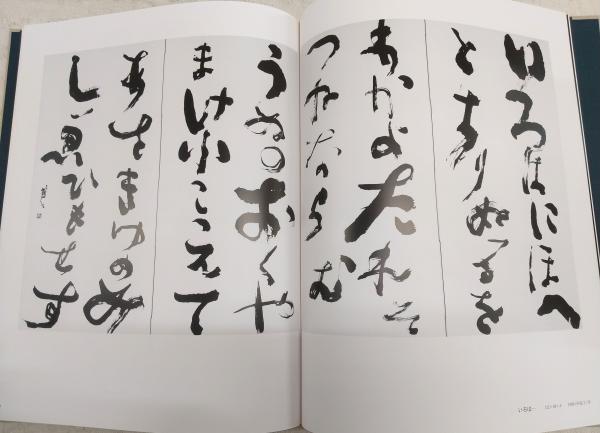 いろはにほへ
とちりぬるを
わかよたれそ
つねならむ
うゐのおくや
まけふこえて
あさきゆめみ
し恵ひもせす
いろは